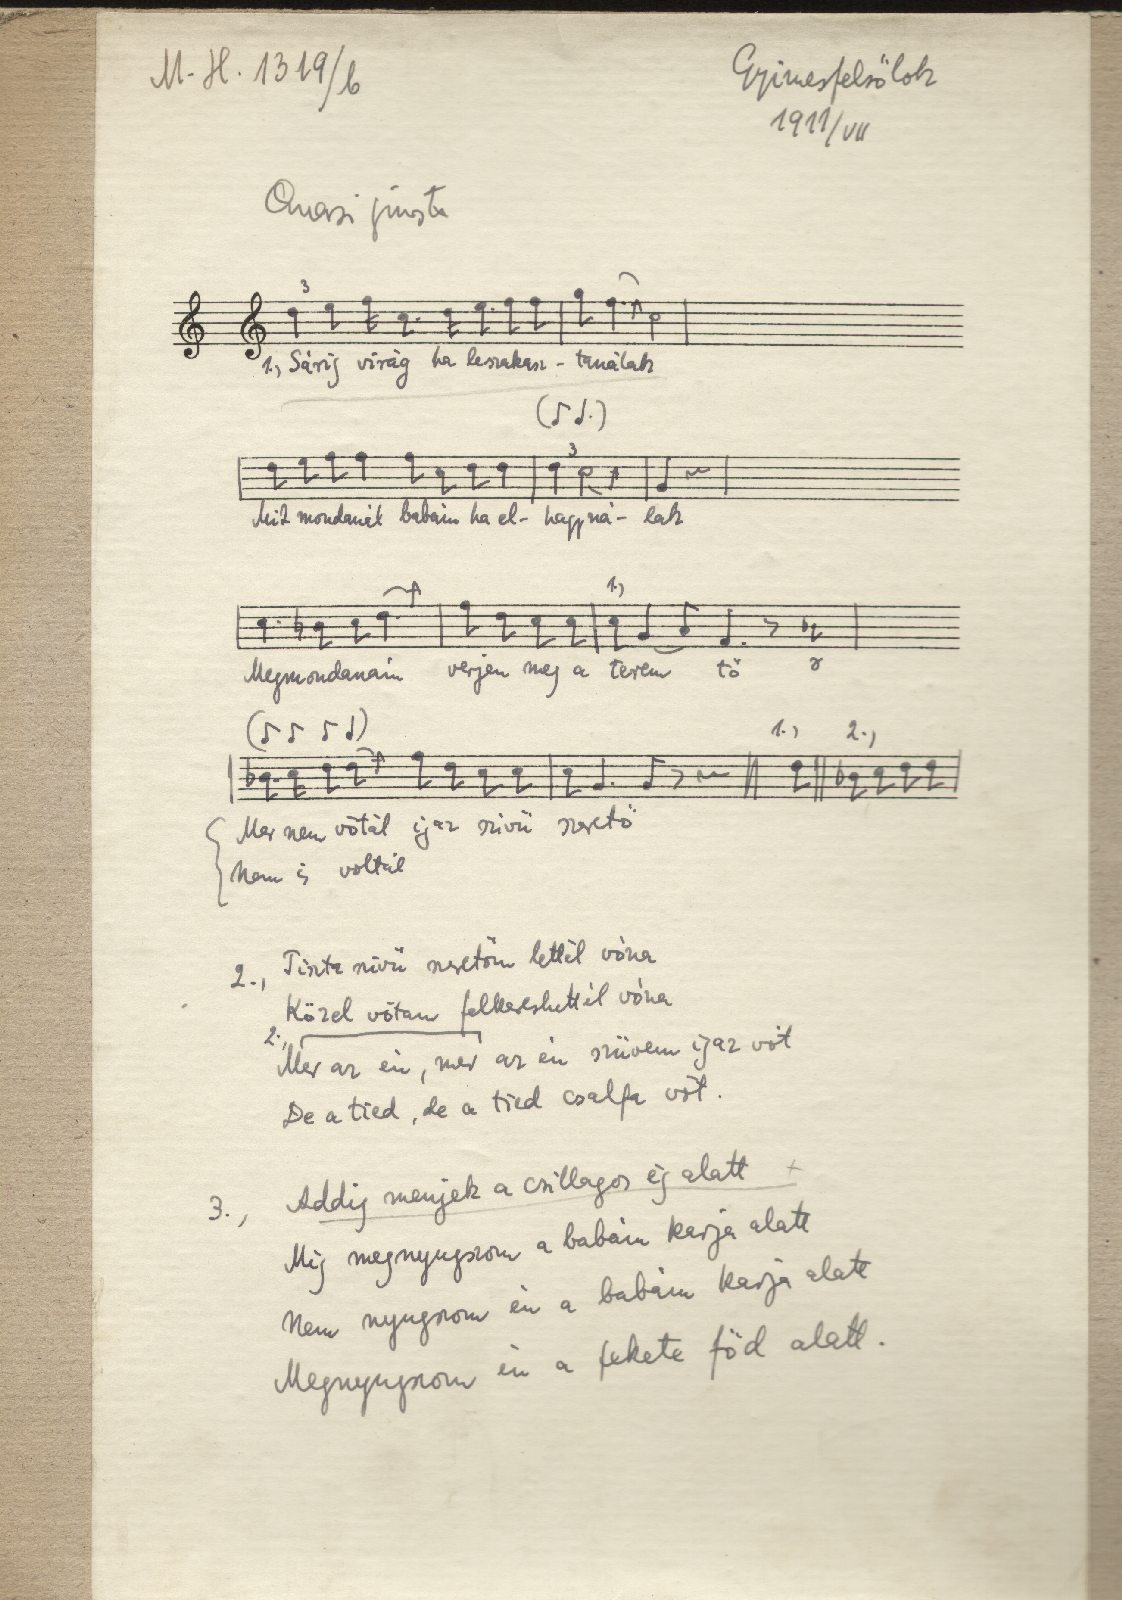 M.H. 1319/b
Gyimesfelsőlok
1911/VII
Quasi giusto
3
1., Sárig virág ha leszakasz - tanálak
3
Mit mondanál babám ha el- hagyná- lak
1.,
Megmondanám verjen meg a terem tő
1., 2.,
Mer nem vótál igaz szivü szerető
Nem is voltál
2., Tiszta szivü szeretőm lettél vóna
Közel vótam felkereshettél vóna
2.,
Mer az én, mer az én szüvem igaz vót
De a tied, de a tied csalfa vót.
3., Addig menjek a csillagos ég alatt +
Mig megnyugszom a babám karja alatt
Nem nyugszom én a babám karja alatt
Megnyugszom én a fekete föd alatt.